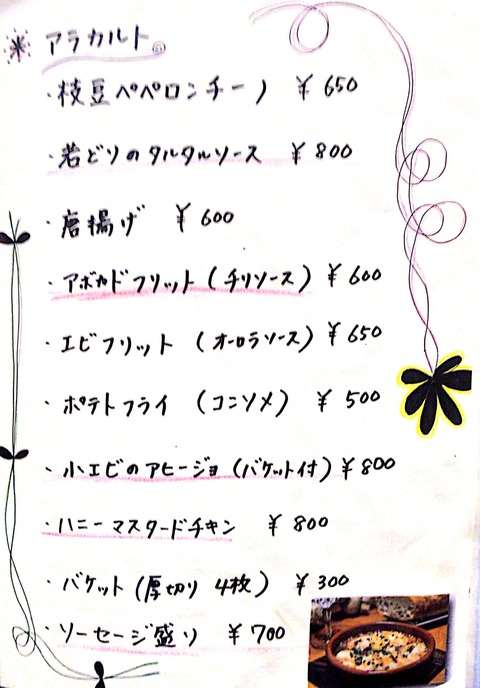 アラカルト
・枝豆ペペロンチーノ ¥650
・若どりのタルタルソース ¥800
・唐揚げ ¥600
・アボカドフリット(チリソース) ¥600
・エビフリット (オーロラソース) ¥650
・ポテトフライ (コンソメ) ¥500
・小エビのアヒージョ(バケット付) ¥800
・ハニーマスタードチキン ¥800
・バケット(厚切り 4枚) ¥300
・ソーセージ盛り ¥700